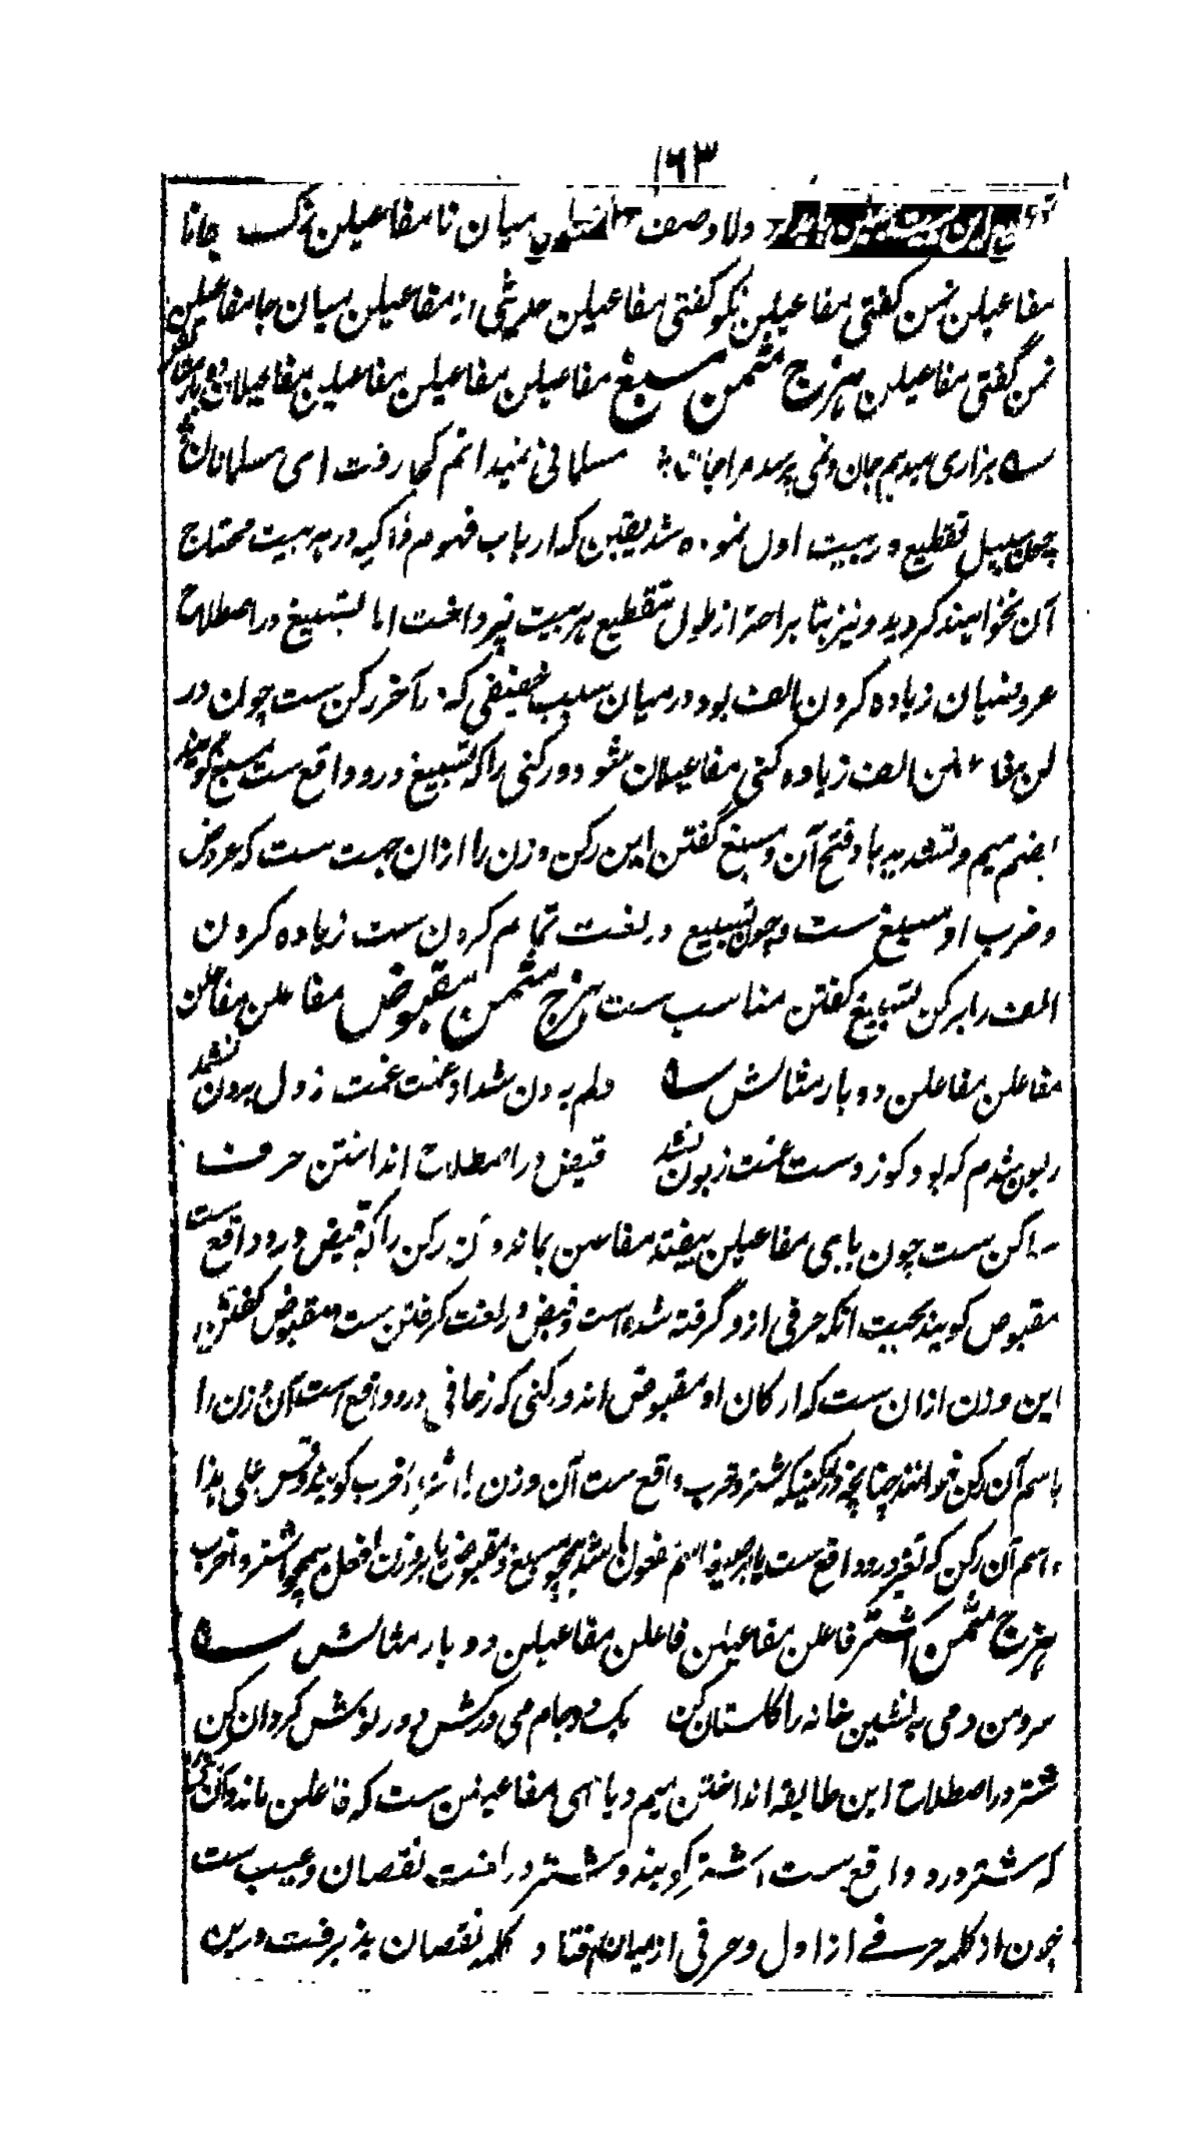 ۱۶۳
تقطیع این بیت چنین باید دلا وصف مفاعیلن میان نا مفاعیلن زکـ جانا
مفاعیلن نمن گفتی مفاعیلن نکو گفتی مفاعیلن حدیثی از مفاعیلن میان جا مفاعیلن
نمن گفتی مفاعیلن هزج مثمن مسبغ مفاعیلن مفاعیلن مفاعیلن مفاعیلان دو بار مثالش
بزاری میدهم جان و نمی پرسد مرا جانان مسلمانی نمیدانم کجا رفت ای مسلمانان
چون سبیل تقطیع در بیت اول نموده شد یقین که ارباب فهوم ذاکیه در هر بیت محتاج
آن نخواهند گردید و نیز بنا بر احتراز طول بتقطیع هر بیت نپرداخت اما تسبیغ در اصطلاح
عروضیان زیاده کردن الف بود در میان سبب خفیفی که در آخر رکن ست چون در
لن مفاعیلن الف زیاده کنی مفاعیلان شود و رکنی را که تسبیغ درو واقع ست مسبغ گویند
بضم میم و تشدید با و فتح آن و مسبغ گفتن این رکن و وزن را ازان جهت ست که عروض
و ضرب او مسبغ ست و چون تسبیغ در لغت تمام کردن ست زیاده کردن
الف را بر رکن تسبیغ گفتن مناسب ست هزج مثمن مقبوض مفاعلن مفاعلن
مفاعلن مفاعلن دو بار مثالش دلم برون شد از غمت غمت ز دل برون نشد
زبون شدم که بود کو ز دست غمت زبون نشد قبض در اصطلاح انداختن حرف
ساکن ست چون یای مفاعیلن بیفتد مفاعلن بماند و آن رکن را که قبض درو واقع ست
مقبوض گویند بجهت آنکه حرفی ازو گرفته شده است و قبض در لغت گرفتن ست و مقبوض گفتن
این وزن ازان ست که ارکان او مقبوض اند و رکنی که زحافی درو واقع است آن وزن را
باسم آن رکن خوانند چنانچه در رکنیکه شتر و خرب واقع ست آن وزن را اشتر و اخرب گویند و قس علی هذا
و اسم آن رکن که تغیر درو واقع ست یا بر صیغه اسم مفعول باشد همچو مسبغ و مقبوض یا بر وزن افعل همچو اشتر و اخرب
هزج مثمن اشتر فاعلن مفاعیلن فاعلن مفاعیلن دو بار مثالش
سرو من دمی بنشین خانه را گلستان کن یک دو جام می درکش دور نوش گردان کن
شتر در اصطلاح این طایفه انداختن میم و یای مفاعیلن ست که فاعلن ماند و آن رکن را
که شتر درو واقع ست اشتر گویند و شتر در لغت نقصان و عیب ست
چون از کلمه حرفے از اول و حرفی از میان افتاد کلمه نقصان پذیرفت درین